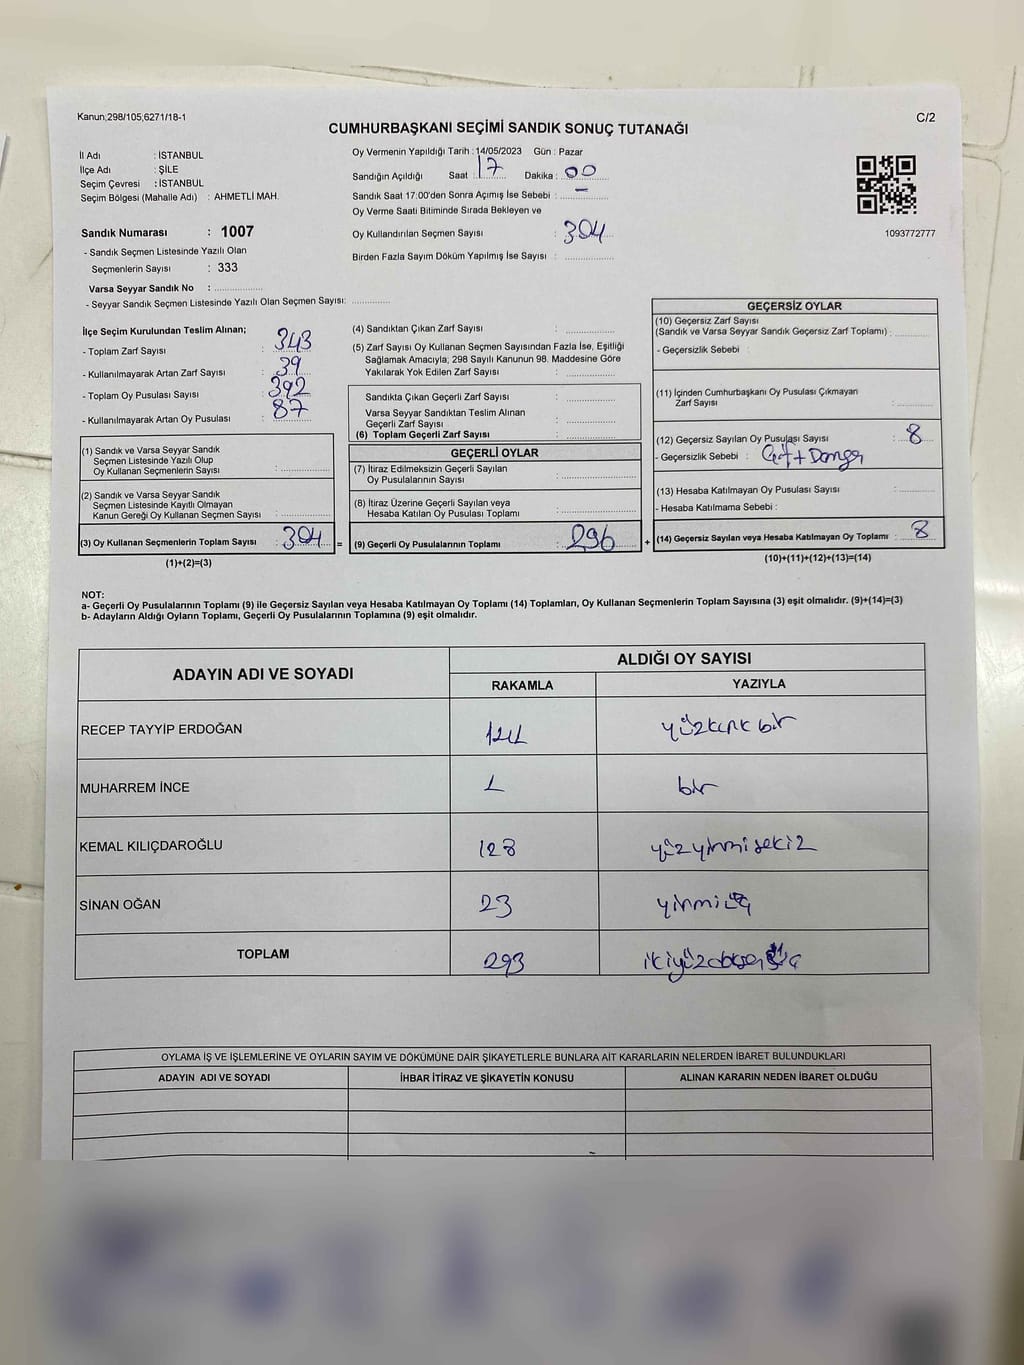 Kanun,298/105,6271/18-1
C/2
CUMHURBAŞKANI SEÇİMİ SANDIK SONUÇ TUTANAĞI
İl Adı : İSTANBUL
İlçe Adı : ŞİLE
Seçim Çevresi : İSTANBUL
Seçim Bölgesi (Mahalle Adı) : AHMETLİ MAH.
Oy Vermenin Yapıldığı Tarih : 14/05/2023 Gün : Pazar
Sandığın Açıldığı Saat : 17 Dakika : 00
Sandık Saat 17:00'den Sonra Açımış İse Sebebi : –
Oy Verme Saati Bitiminde Sırada Bekleyen ve
Oy Kullandırılan Seçmen Sayısı : 304
Birden Fazla Sayım Döküm Yapılmış İse Sayısı :
1093772777
Sandık Numarası : 1007
- Sandık Seçmen Listesinde Yazılı Olan
Seçmenlerin Sayısı : 333
Varsa Seyyar Sandık No :
- Seyyar Sandık Seçmen Listesinde Yazılı Olan Seçmen Sayısı:
İlçe Seçim Kurulundan Teslim Alınan;
- Toplam Zarf Sayısı : 343
- Kullanılmayarak Artan Zarf Sayısı : 39
- Toplam Oy Pusulası Sayısı : 392
- Kullanılmayarak Artan Oy Pusulası : 87
(1) Sandık ve Varsa Seyyar Sandık
Seçmen Listesinde Yazılı Olup
Oy Kullanan Seçmenlerin Sayısı :
(2) Sandık ve Varsa Seyyar Sandık
Seçmen Listesinde Kayıtlı Olmayan
Kanun Gereği Oy Kullanan Seçmen Sayısı :
(3) Oy Kullanan Seçmenlerin Toplam Sayısı : 304 =
(1)+(2)=(3)
(4) Sandıktan Çıkan Zarf Sayısı :
(5) Zarf Sayısı Oy Kullanan Seçmen Sayısından Fazla İse, Eşitliği
Sağlamak Amacıyla, 298 Sayılı Kanunun 98. Maddesine Göre
Yakılarak Yok Edilen Zarf Sayısı :
Sandıkta Çıkan Geçerli Zarf Sayısı :
Varsa Seyyar Sandıktan Teslim Alınan
Geçerli Zarf Sayısı :
(6) Toplam Geçerli Zarf Sayısı :
GEÇERLİ OYLAR
(7) İtiraz Edilmeksizin Geçerli Sayılan
Oy Pusulalarının Sayısı :
(8) İtiraz Üzerine Geçerli Sayılan veya
Hesaba Katılan Oy Pusulası Toplamı :
(9) Geçerli Oy Pusulalarının Toplamı : 296 +
GEÇERSİZ OYLAR
(10) Geçersiz Zarf Sayısı
(Sandık ve Varsa Seyyar Sandık Geçersiz Zarf Toplamı) :
- Geçersizlik Sebebi :
(11) İçinden Cumhurbaşkanı Oy Pusulası Çıkmayan
Zarf Sayısı :
(12) Geçersiz Sayılan Oy Pusulası Sayısı : 8
- Geçersizlik Sebebi : Çift + Damga
(13) Hesaba Katılmayan Oy Pusulası Sayısı :
- Hesaba Katılmama Sebebi :
(14) Geçersiz Sayılan veya Hesaba Katılmayan Oy Toplamı : 8
(10)+(11)+(12)+(13)=(14)
NOT:
a- Geçerli Oy Pusulalarının Toplamı (9) ile Geçersiz Sayılan veya Hesaba Katılmayan Oy Toplamı (14) Toplamları, Oy Kullanan Seçmenlerin Toplam Sayısına (3) eşit olmalıdır. (9)+(14)=(3)
b- Adayların Aldığı Oyların Toplamı, Geçerli Oy Pusulalarının Toplamına (9) eşit olmalıdır.
ADAYIN ADI VE SOYADI
ALDIĞI OY SAYISI
RAKAMLA YAZIYLA
RECEP TAYYİP ERDOĞAN 141 yüzkırk bir
MUHARREM İNCE 1 bir
KEMAL KILIÇDAROĞLU 128 yüzyirmisekiz
SİNAN OĞAN 23 yirmiüç
TOPLAM 293
OYLAMA İŞ VE İŞLEMLERİNE VE OYLARIN SAYIM VE DÖKÜMÜNE DAİR ŞİKAYETLERLE BUNLARA AİT KARARLARIN NELERDEN İBARET BULUNDUKLARI
ADAYIN ADI VE SOYADI İHBAR İTİRAZ VE ŞİKAYETİN KONUSU ALINAN KARARIN NEDEN İBARET OLDUĞU